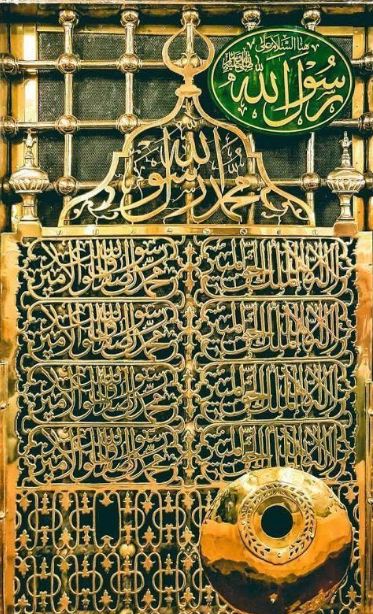 هنا السلام على
رسول الله
صلى الله عليه وسلم
محمد رسول الله
لا إله إلا الله الملك الحق المبين محمد رسول الله صادق الوعد الأمين
لا إله إلا الله الملك الحق المبين محمد رسول الله صادق الوعد الأمين
لا إله إلا الله الملك الحق المبين محمد رسول الله صادق الوعد الأمين
لا إله إلا الله الملك الحق المبين محمد رسول الله صادق الوعد الأمين